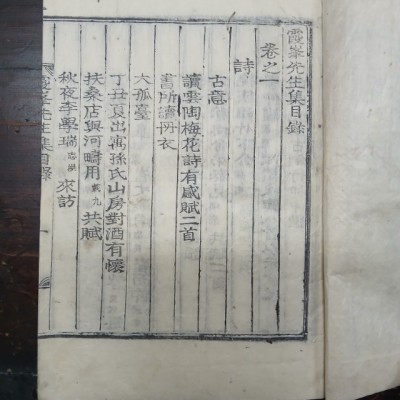 霞峯先生集目錄
卷之一
詩
古意
讀雲陶梅花詩有感賦二首
書所讀冊衣
大孤臺
丁丑夏出寓孫氏山房對酒有懷
扶桑店與河疇用九共賦
秋夜李學瑞來訪
霞峯先生集目錄